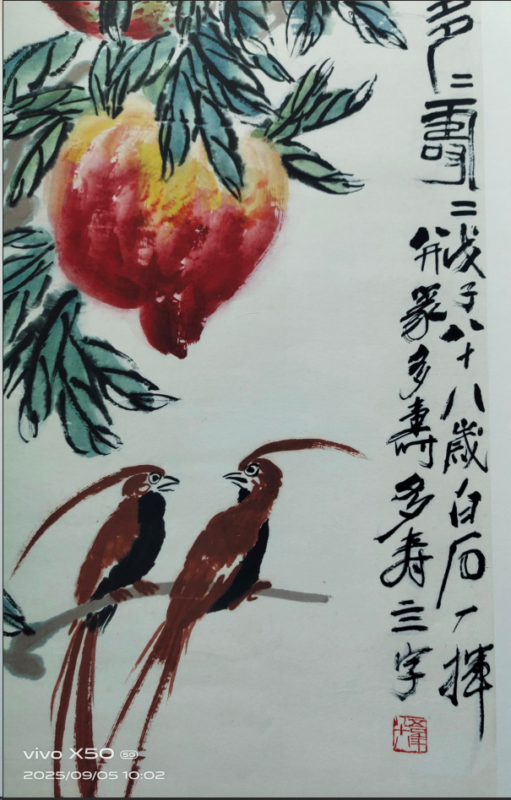 多二壽二
戊子八十八歲白石一揮
并篆多壽多寿三字
vivo X50 5G
2025/09/05 10:02